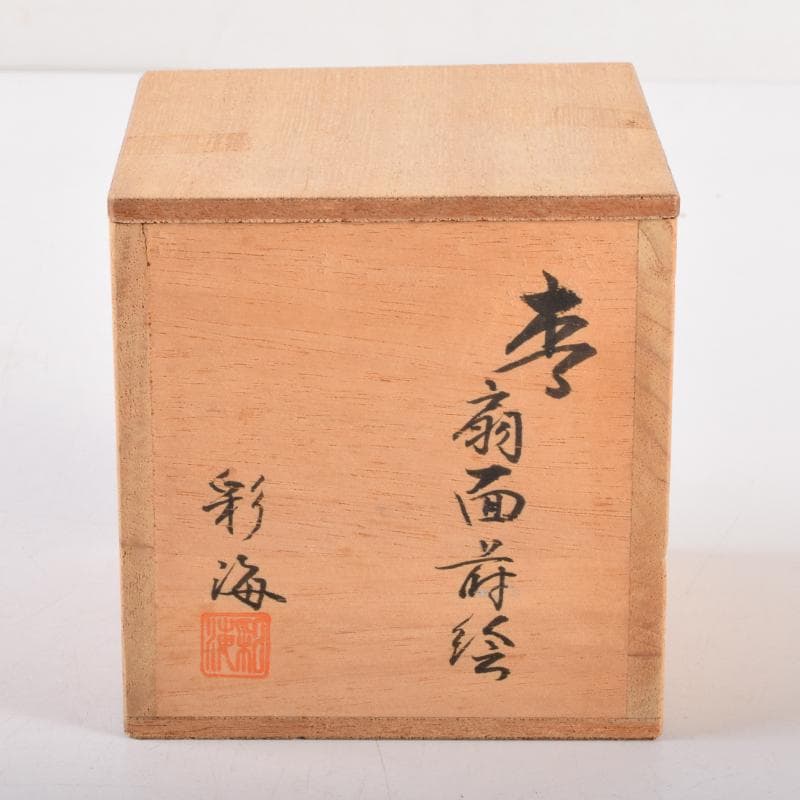 棗
扇面蒔絵
彩海
彩海